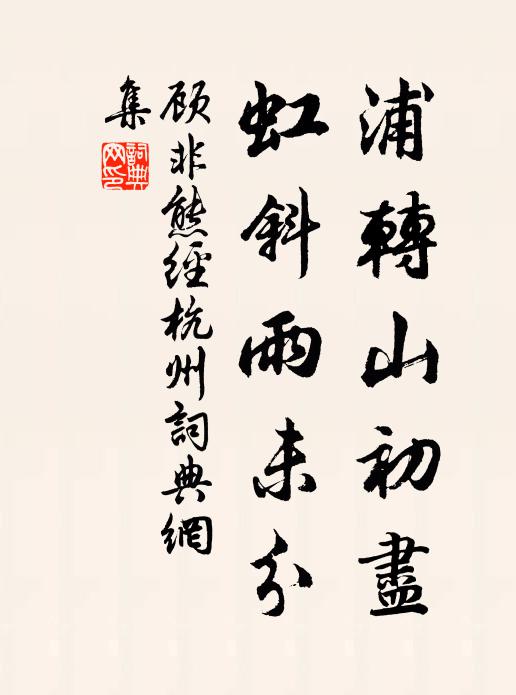 浦轉山初盡
虹斜雨未分
顾非熊經杭州詞典網
集
詞典網印